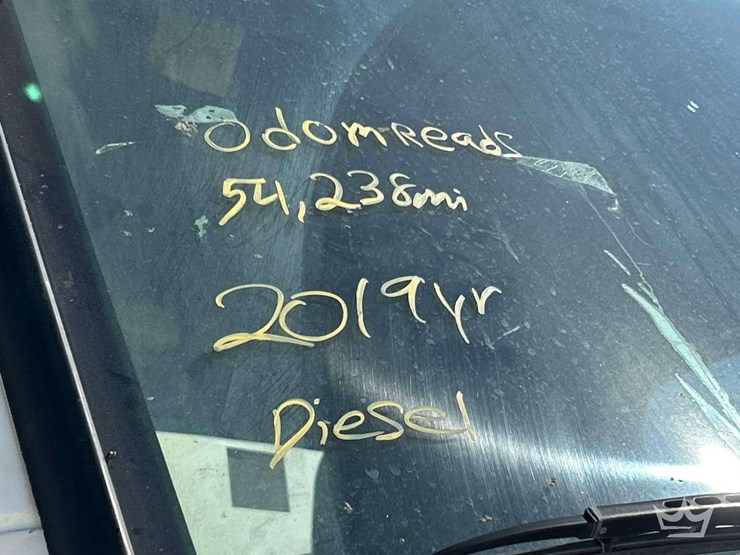 Odom Reads
54,238mi
2019yr
Diesel